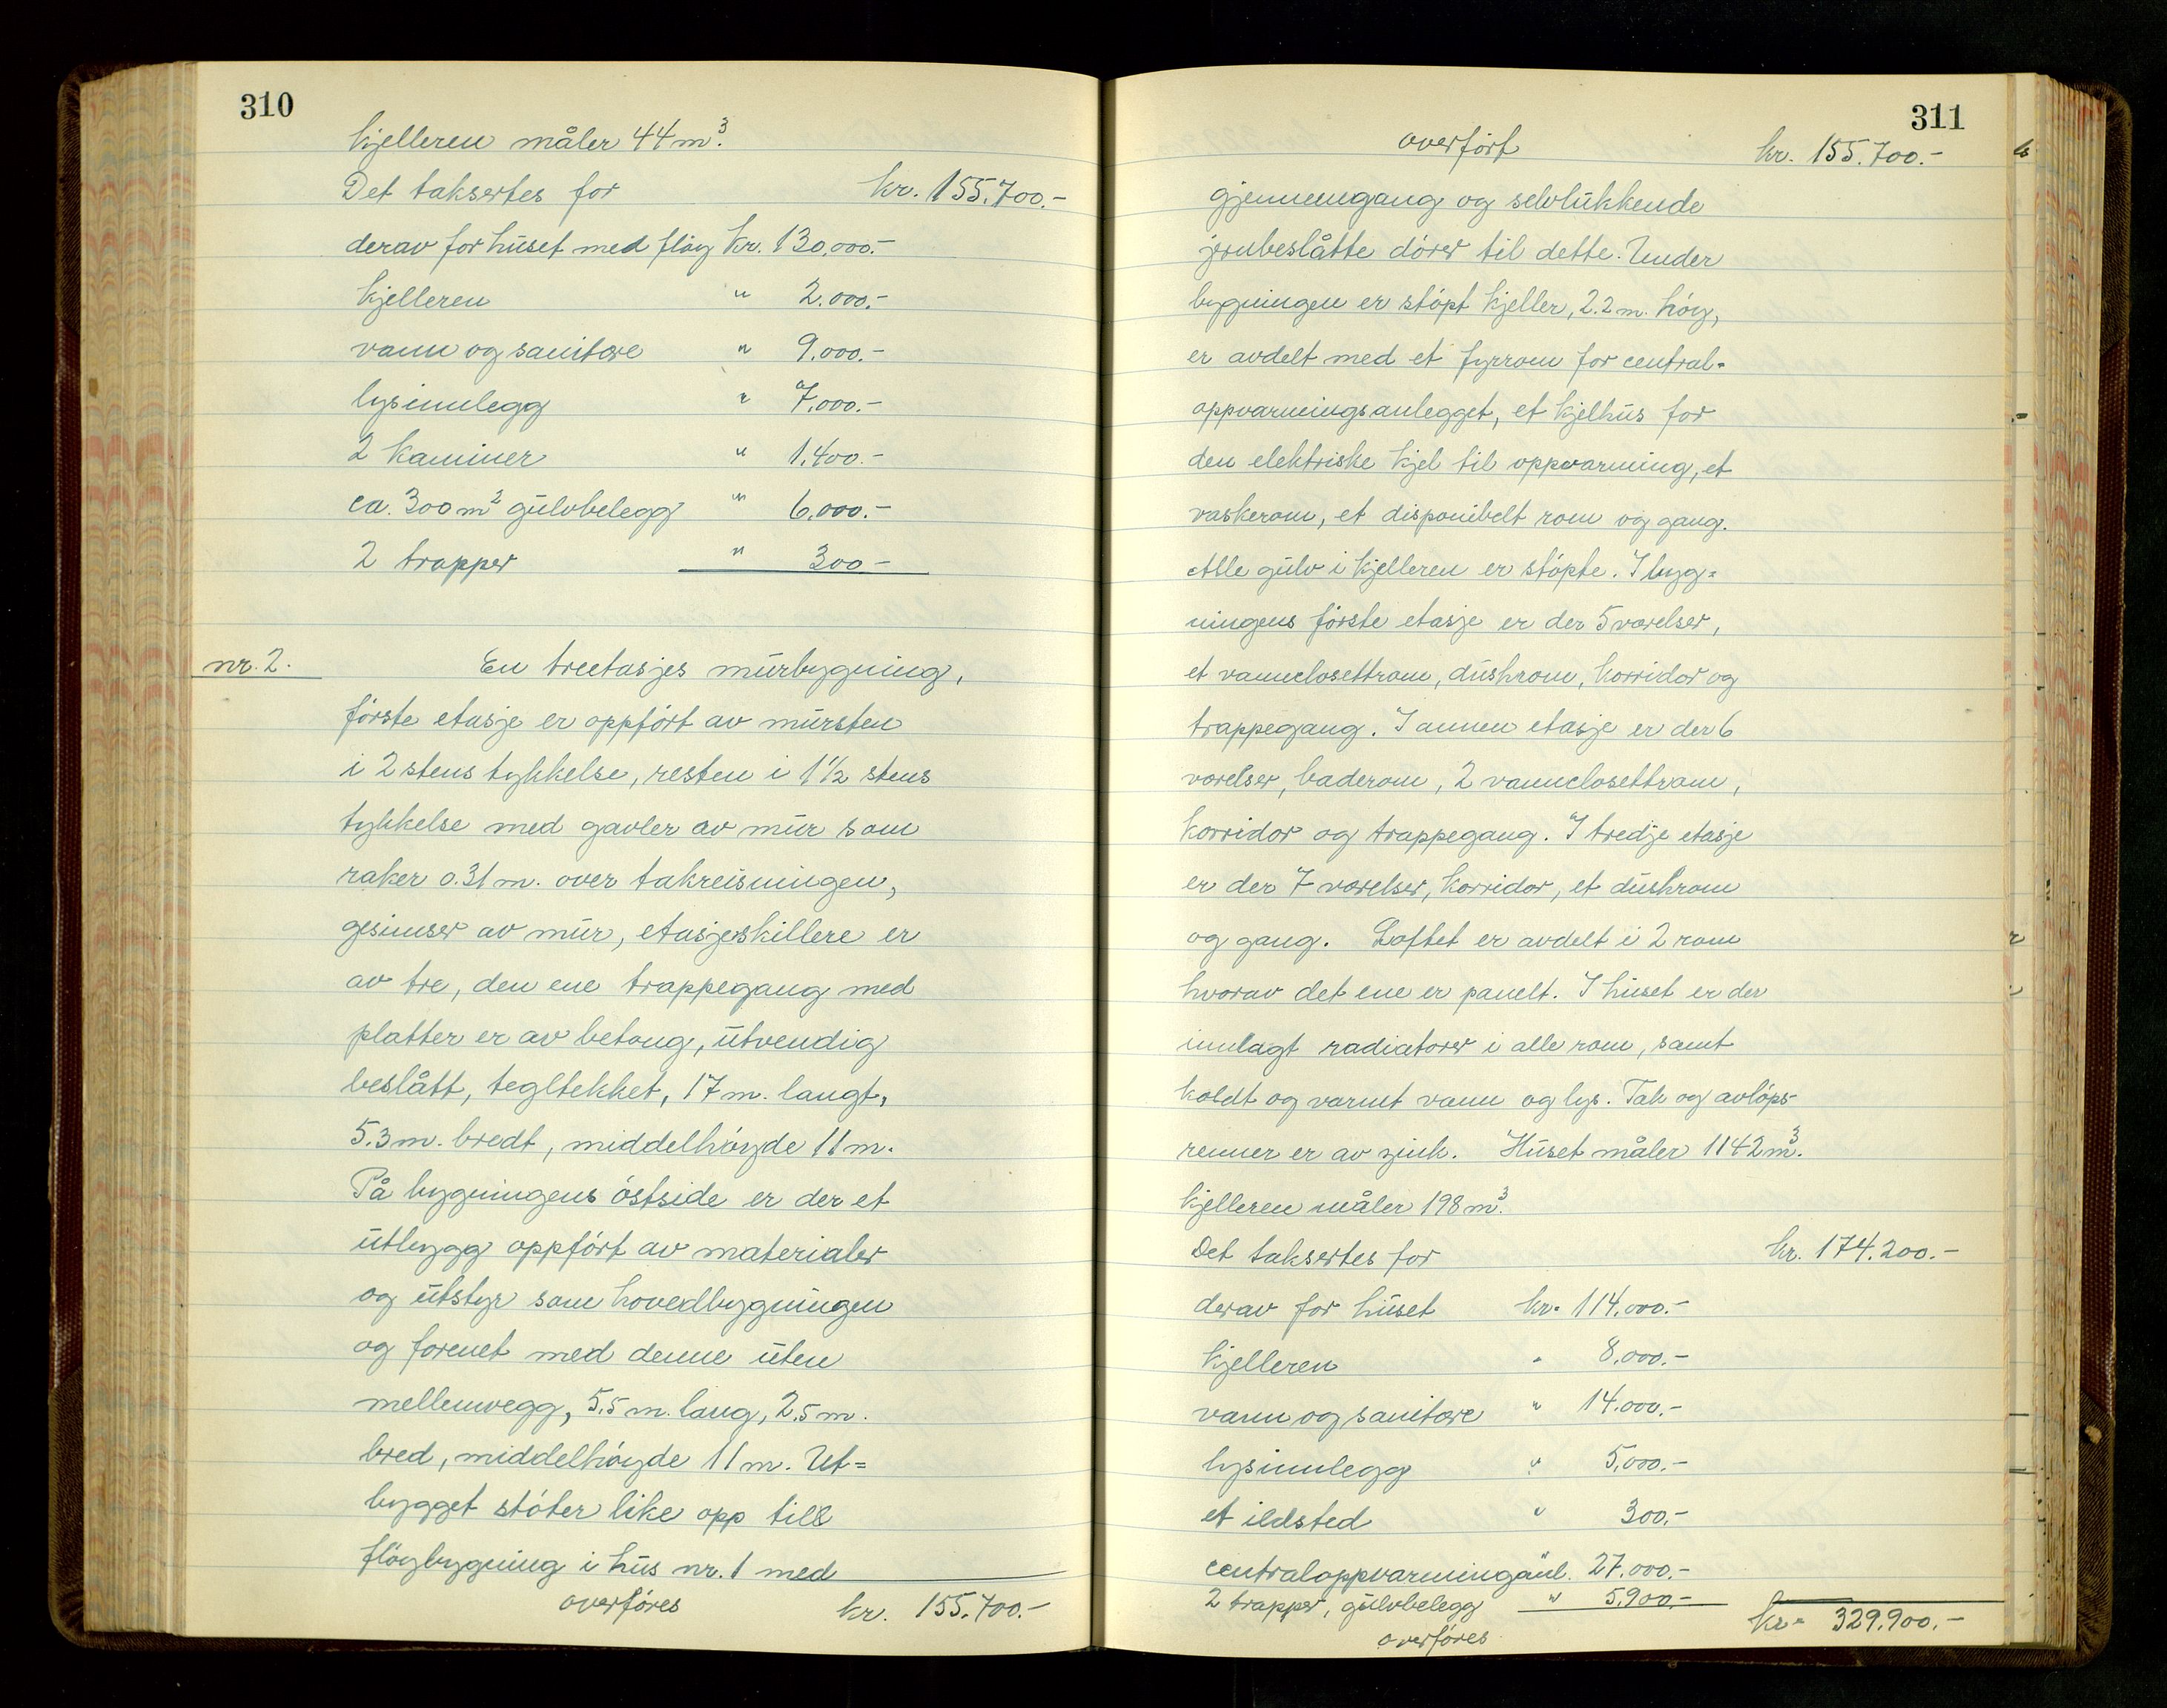 310
kjelleren måler 44 m³.
Det taksertes for kr. 155.700.-
derav for huset med fløy kr. 130.000.-
kjelleren " 2.000.-
vann og sanitære " 9.000.-
lysinnlegg " 7.000.-
2 kaminer " 1.400.-
ca. 300 m² gulvbelegg " 6.000.-
2 trapper " 300-
nr. 2. En treetasjes murbygning,
første etasje er oppført av mursten
i 2 stens tykkelse, resten i 1½ stens
tykkelse med gavler av mur som
raker 0.31 m. over takreisningen,
gesimser av mur, etasjeskillere er
av tre, den ene trappegang med
platter er av betong, utvendig
beslått, tegltekket, 17 m. langt,
5.3 m. bredt, middelhøyde 11 m.
På bygningens østside er der et
utbygg oppført av materialer
og utstyr som hovedbygningen
og forenet med denne uten
mellemvegg, 5.5 m. lang, 2.5 m.
bred, middelhøyde 11 m. Ut=
bygget støter like opp till
fløybygning i hus nr. 1 med
overføres kr. 155.700.-
311
overført kr. 155.700.-
gjennemgang og selvlukkende
jernbeslåtte dører til dette. Under
bygningen er støpt kjeller, 2.2 m. høy,
er avdelt med et fyrrom for central=
oppvarmingsanlegget, et kjelhus for
den elektriske kjel til oppvarming, et
vaskerom, et disponibelt rom og gang.
Alle gulv i kjelleren er støpte. I byg=
ningens første etasje er der 5 værelser,
et vannclosettrom, dushrom, korridor og
trappegang. I annen etasje er der 6
værelser, baderom, 2 vannclosettrom,
korridor og trappegang. I tredje etasje
er der 7 værelser, korridor, et dushrom
og gang. Loftet er avdelt i 2 rom
hvorav det ene er panelt. I huset er der
innlagt radiatorer i alle rom, samt
koldt og varmt vann og lys. Tak og avløps-
renner er av zink. Huset måler 1142 m³.
kjelleren måler 198 m³.
Det taksertes for kr. 174.200.-
derav for huset kr. 114.000.-
kjelleren " 8.000.-
vann og sanitære " 14.000.-
lysinnlegg " 5.000.-
et ildsted " 300.-
centraloppvarminganl. " 27.000.-
2 trapper, gulvbelegg " 5.900.-
overføres kr. 329.900.-